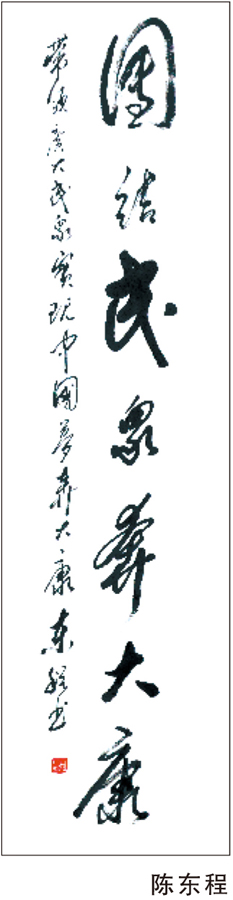 團结民众奔大康
带领广大民众实现中国梦奔大康东程书
陈东程